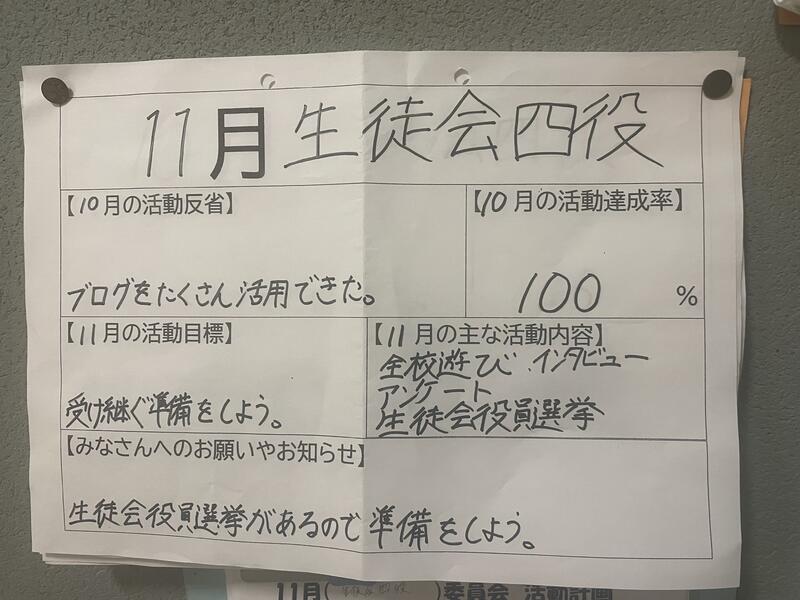 11月生徒会四役
【10月の活動反省】
ブログをたくさん活用できた。
【10月の活動達成率】
100 %
【11月の活動目標】
受け継ぐ準備をしよう。
【11月の主な活動内容】
全校遊び インタビュー
アンケート
生徒会役員選挙
【みなさんへのお願いやお知らせ】
生徒会役員選挙があるので準備をしよう。
11月( )委員会 活動計画